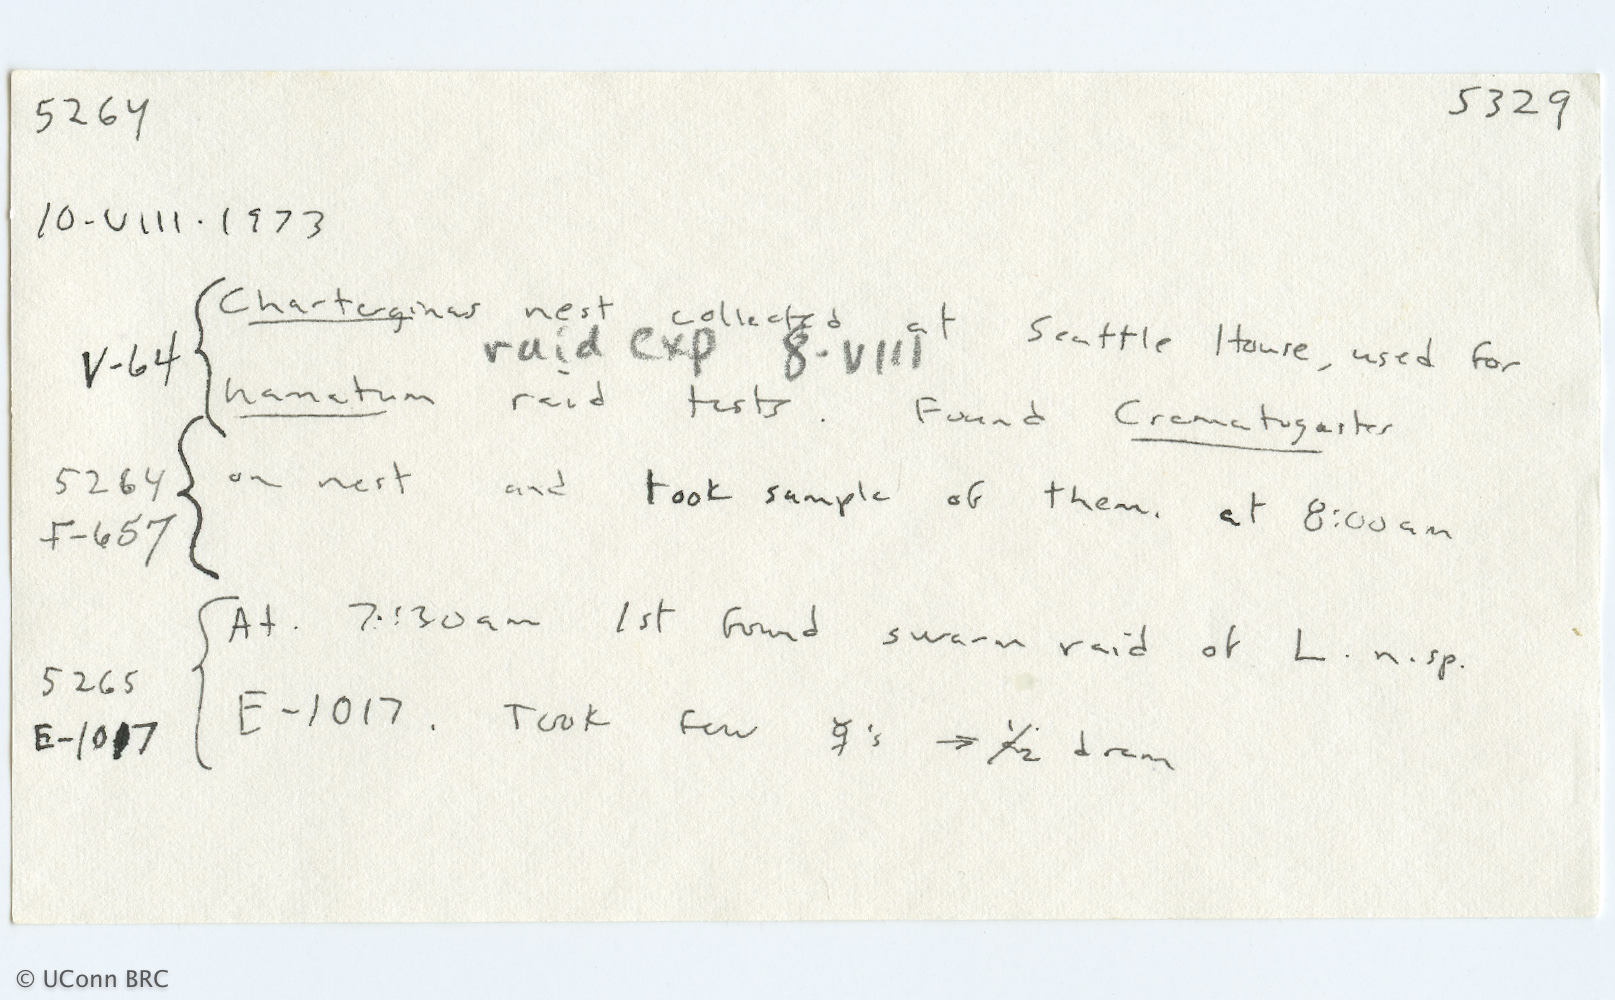 5264 5329
10-VIII.1973
Charterginus nest collected at Seattle House, used for
raid exp 8-VIII
V-64
hamatum raid tests. Found Crematogaster
5264 on nest and took sample of them. at 8:00am
F-657
At. 7:30am 1st found swarm raid of L. n.sp.
5265
E-1017. Took few ☿'s → 1/2 dram
E-1017
© UConn BRC